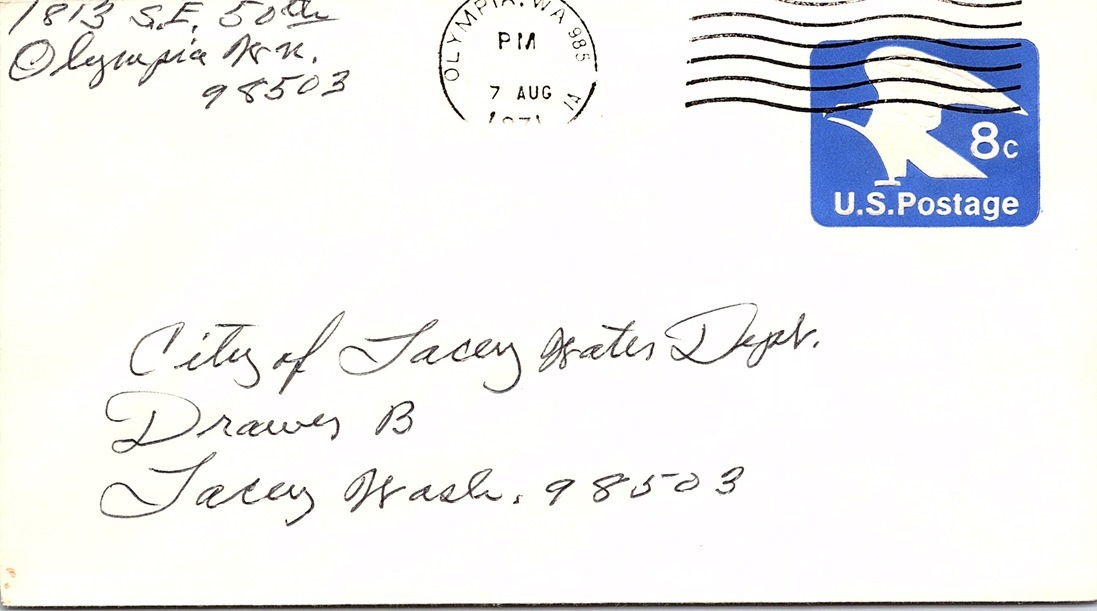 1813 S.E. 50th
Olympia Wn.
98503
OLYMPIA, WA 985
PM
7 AUG
8c
U.S. Postage
City of Lacey Water Dept.
Drawer B
Lacey Wash. 98503